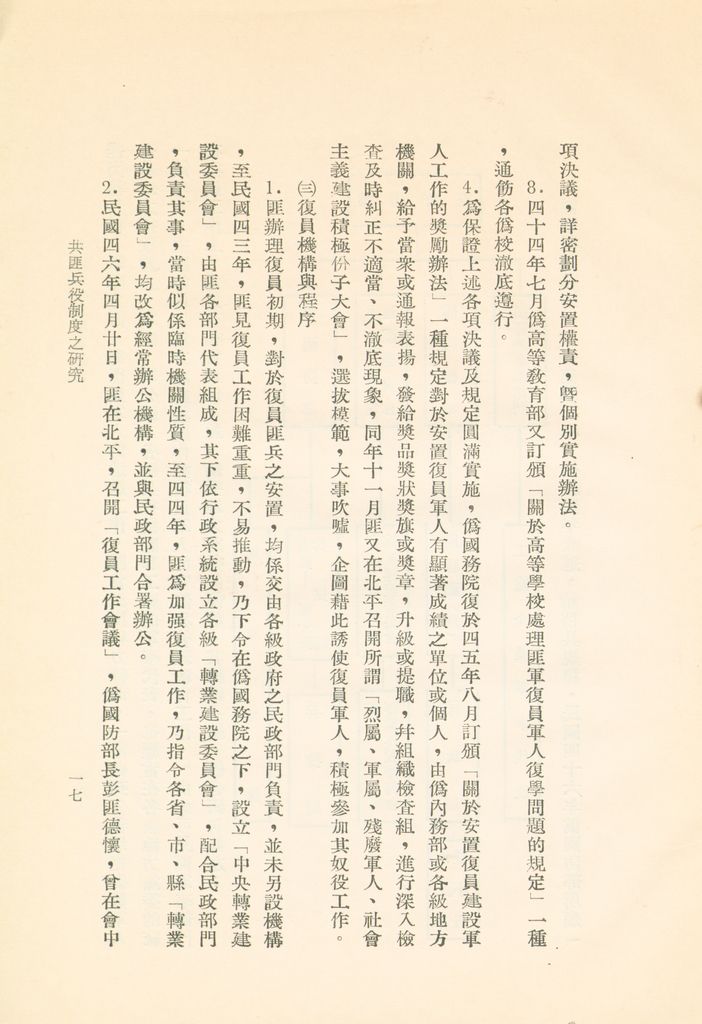 項決議，詳密劃分安置權責，曁個別實施辦法。
8.四十四年七月僞高等敎育部又訂頒「關於高等學校處理匪軍復員軍人復學問題的規定」一種
，通飭各僞校澈底遵行。
4.爲保證上述各項決議及規定圓滿實施，僞國務院復於四五年八月訂頒「關於安置復員建設軍
人工作的獎勵辦法」一種規定對於安置復員軍人有顯著成績之單位或個人，由僞內務部或各級地方
機關，給予當衆或通報表揚，發給獎品獎狀獎旗或獎章，升級或提職，幷組織檢查組，進行深入檢
查及時糾正不適當、不澈底現象，同年十一月匪又在北平召開所謂「烈屬、軍屬、殘廢軍人、社會
主義建設積極份子大會」，選拔模範，大事吹噓，企圖藉此誘使復員軍人，積極參加其奴役工作。
㈢復員機構與程序
1.匪辦理復員初期，對於復員匪兵之安置，均係交由各級政府之民政部門負責，並未另設機構
，至民國四三年，匪見復員工作困難重重，不易推動，乃下令在僞國務院之下，設立「中央轉業建
設委員會」，由匪各部門代表組成，其下依行政系統設立各級「轉業建設委員會」，配合民政部門
，負責其事，當時似係臨時機關性質，至四四年，匪爲加强復員工作，乃指令各省、市、縣「轉業
建設委員會」，均改爲經常辦公機構，並與民政部門合署辦公。
2.民國四六年四月廿日，匪在北平，召開「復員工作會議」，僞國防部長彭匪德懷，曾在會中
共匪兵役制度之硏究
一七